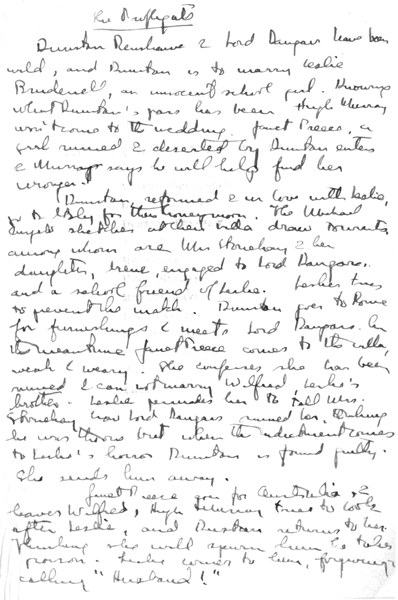 The Profligate
Dunstan Renshawe & Lord Dangars have been
wild, and Dunstan is to marry Leslie
Brudenell, an innocent school girl. Knowing
what Dunstan's past has been Hugh Murray
won't come to the wedding. Janet Preece, a
girl ruined & deserted by Dunstan enters
& Murray says he will help find her
wronger.
Dunstan, reformed & in love with Leslie,
go to Italy for their honeymoon. The Michael
Angelo sketches at their villa draw tourists
among whom are Mrs Stonehay & her
daughter, Irene, engaged to Lord Dangars,
and a school friend of Leslie. Leslie tries
to prevent the match. Dunstan goes to Rome
for furnishings & meets Lord Dangars. In
the meantime Janet Preece comes to the villa,
weak & weary. She confesses she has been
ruined & can not marry Wilfred, Leslie's
brother. Leslie persuades her to tell Mrs.
Stonehay how Lord Dangars ruined her, thinking
he was the one but when the indictment comes
to Leslie's horror Dunstan is found guilty.
She sends him away.
Janet Preece goes for Australia &
leaves Wilfred, Hugh Murray tries to look
after Leslie, and Dunstan returns to her.
Thinking she will spurn him he takes
poison. Leslie comes to him, forgiving
calling "Husband!"